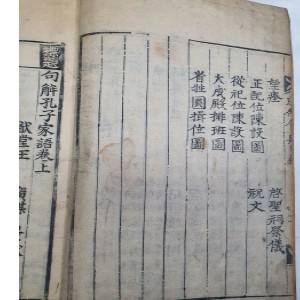 望瘞 啓聖祠祭儀
正配位陳設圖 祝文
從祀位陳設圖
大成殿排班圖
省牲圓揖位圖
句解孔子家語卷上
猷堂王 廣謀